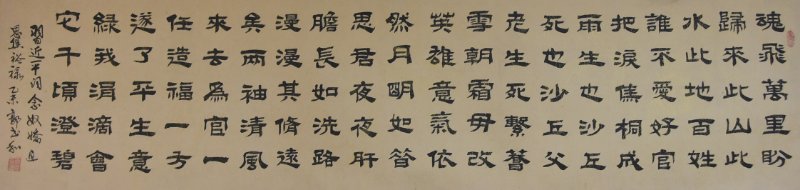 魂飛萬里盼
歸來此山此
水此地百姓
誰不愛好官
把淚焦桐成
雨生也沙丘
死也沙丘父
老生死繫暮
雪朝霜毋改
英雄意氣依
然月明如昔
思君夜夜肝
膽長如洗路
漫漫其脩遠
矣兩袖清風
來去為官一
任造福一方
遂了平生意
綠我涓滴會
它千頃澄碧
習近平詞念奴嬌追
思焦裕祿乙未